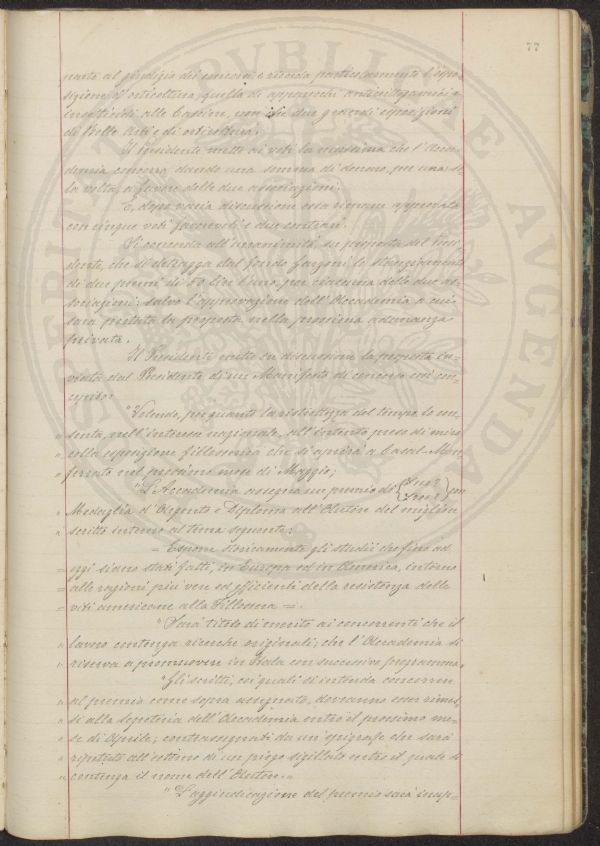 77
narte al giudizio dei concorsi, e ricorda particolarmente l'espo-
sizione d'orticoltura, quella di apparecchi anticrittogamici e
insetticidi alle Cascine, non che due grandi esposizioni
di Belle Arti e di orticoltura.
Il Presidente mette ai voti la massima che l'Acca-
demia concorra dando una somma di denaro, per una so-
la volta, a favore delle due associazioni.
E, dopo varia discussione essa rimane approvata
con cinque voti favorevoli e due contrari.
Si accorda all'unanimità, su proposta del Presi-
dente, che si detragga dal fondo lo stanziamento
di due premi di 50 lire l'uno, per ciascuna delle due as-
sociazioni: salvo l'approvazione dell'Accademia a cui
sarà portata la proposta nella prossima adunanza
privata.
Il Presidente mette in discussione la proposta in-
viata dal Presidente di un Manifesto di concorso così con-
cepito:
"Volendo, per quanto la ristrettezza del tempo lo con-
" senta, nell'interesse nazionale, all'intento preso di mira
" colla esposizione fillosserica che si aprirà a Casal-Mon-
" ferrato nel prossimo mese di Maggio;
"L'Accademia assegna un premio di con
" Medaglia d'Argento e Diploma all'Autore del migliore
" scritto intorno al tema seguente:
= Esporre storicamente gli studii che fino ad
= oggi siano stati fatti, in Europa ed in America, intorno
= alle ragioni più vere ed efficienti della resistenza delle
= viti americane alla Fillossera =.
"Sarà titolo di merito ai concorrenti che il
" lavoro contenga ricerche originali; che l'Accademia si
" riserva a promuovere in Italia con successivo programma.
"Gli scritti, coi quali si intenda concorrere
" al premio come sopra assegnato, dovranno esser rimes-
" si alla Segreteria dell'Accademia entro il prossimo me-
" se di Aprile; contrassegnati da un'epigrafe che sarà
" ripetuta all'esterno di un piego sigillato entro il quale si
" contenga il nome dell'Autore."
"L'aggiudicazione del premio sarà inap-